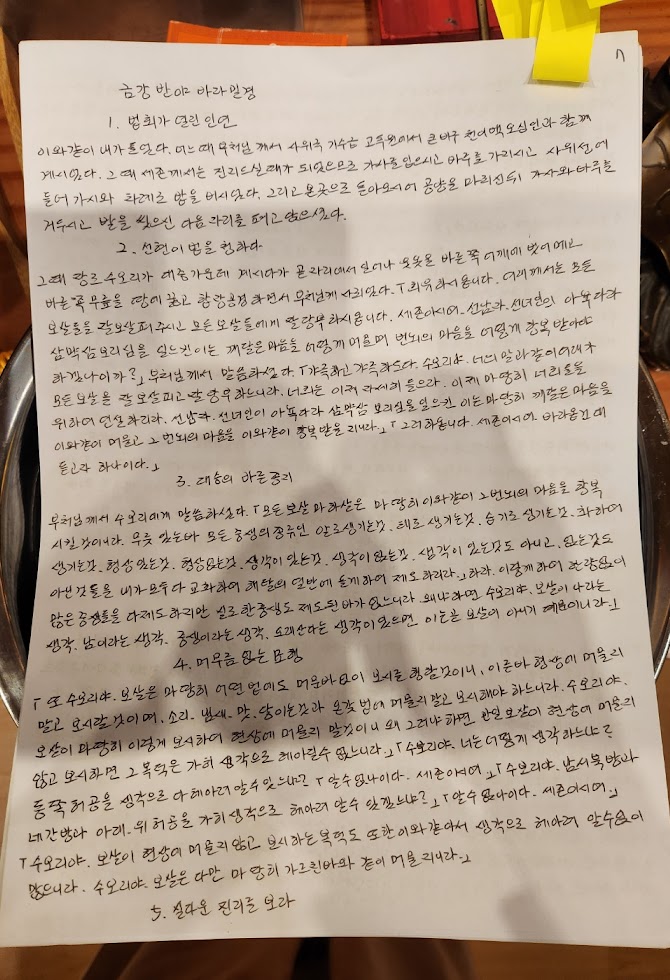 7
금강 반야 바라밀경
1. 법회가 열린 인연
이와같이 내가 들었다. 어느때 부처님께서 사위국 기수급 고독원에서 큰비구 천이백 오십인과 함께
계시었다. 그때 세존께서는 진지드실때가 되었으므로 가사를 입으시고 바루를 가지시고 사위성에
들어 가시와 차례로 밥을 비시었다. 그리고 본곳으로 돌아오시어 공양을 마치신뒤 가사와 바루를
거두시고 발을 씻으신 다음 자리를 펴고 앉으셨다.
2. 선현이 법을 청하다
그때 장로 수보리가 대중가운데 계시다가 곧 자리에서 일어나 웃옷을 바른쪽 어깨에 벗어메고
바른쪽 무릎을 땅에 꿇고 합장공경하면서 부처님께 사뢰었다. 「희유하시옵니다. 여래께서는 모든
보살들을 잘보살펴 주시고 모든 보살들에게 잘당부하시옵니다. 세존이시여. 선남자. 선녀인이 아뇩다라
삼먁삼보리심을 일으킨이는 깨달은마음을 어떻게 머물며 번뇌의 마음을 어떻게 항복 받아야
하겠나이까?」 부처님께서 말씀하셨다. 「갸륵하고 갸륵하도다. 수보리야. 너의 말과같이 여래가
모든 보살을 잘 보살피고 잘 당부 하느니라. 너희는 이제 자세히 들으라. 이제 마땅히 너희들을
위하여 연설하리라. 선남자. 선녀인이 아뇩다라 삼먁삼 보리심을 일으킨 이는 마땅히 깨달은 마음을
이와같이 머물고 그 번뇌의 마음을 이와같이 항복 받을 지니라.」 「그러하옵니다. 세존이시여. 바라옵건대
듣고자 하나이다.」
3. 대승의 바른종지
부처님께서 수보리에게 말씀하셨다. 「모든보살 마하살은 마땅히 이와같이 그 번뇌의 마음을 항복
시킬것이니라. 무릇 있는바 모든 중생의 종류인 알로생기는것. 태로 생기는것. 습기로 생기는것. 화하여
생기는것. 형상 있는것. 형상없는것. 생각이 있는것. 생각이 없는것. 생각이 있는것도 아니고. 없는것도
아닌것들을 내가 모두다 교화하여 해탈의 열반에 들게하여 제도하리라.」 하라. 이렇게하여 한량없이
많은 중생들을 다제도하지만 실로 한중생도 제도된바가 없느니라. 왜냐하면 수보리야. 보살이 나라는
생각. 남이라는 생각. 중생이라는 생각. 오래산다는 생각이 있으면. 이는곧 보살이 아니기 때문이니라.」
4. 머무름 없는 묘행
「또 수보리야. 보살은 마땅히 어떤 법에도 머문바 없이 보시를 행할것이니, 이른바 형상에 머물지
말고 보시할것이며, 소리. 냄새. 맛. 닿이는것과 온갖 법에 머물지 말고 보시해야 하느니라. 수보리야.
보살이 마땅히 이렇게 보시하여 현상에 머물지 말것이니 왜 그러냐 하면. 만일 보살이 현상에 머물지
않고 보시하면 그 복덕은 가히 생각으로 헤아릴수 없느니라.」 「수보리야. 너는 어떻게 생각 하느냐?
동쪽허공을 생각으로 다 헤아려 알수있느냐? 「알수 없나이다. 세존이시여.」 「수보리야. 남서북방과
네간방과 아래. 위 허공을 가히 생각으로 헤아려 알수 있겠느냐?」 「알수 없나이다. 세존이시여.」
「수보리야. 보살이 현상에 머물지않고 보시하는 복덕도 또한 이와같아서 생각으로 헤아려 알수없이
많으니라. 수보리야. 보살은 다만 마땅히 가르친바와 같이 머물 지니라.」
5. 실다운 진리를 보라